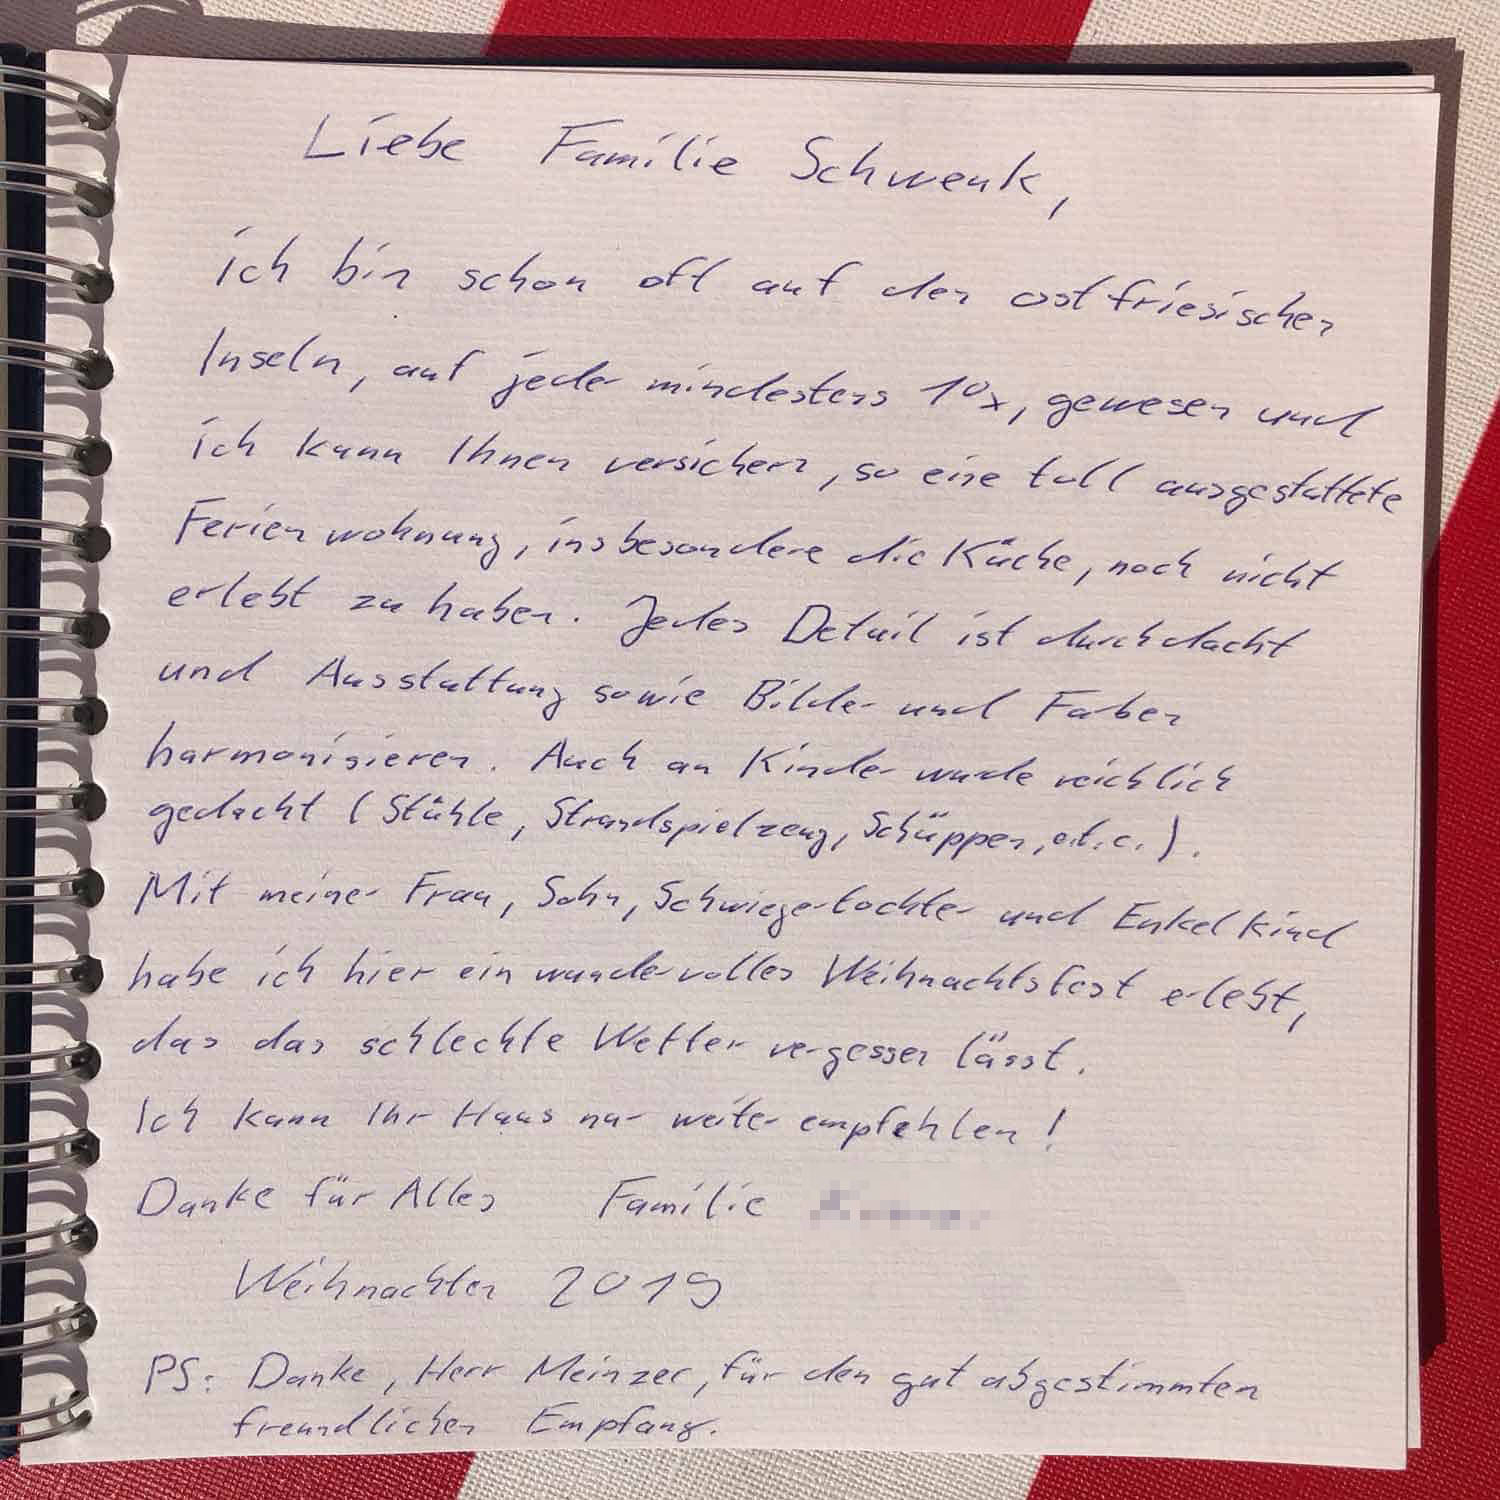 Liebe Familie Schwenk,
ich bin schon oft auf den ostfriesischen
Inseln, auf jeder mindestens 10x, gewesen und
ich kann Ihnen versichern, so eine toll ausgestattete
Ferienwohnung, insbesondere die Küche, noch nicht
erlebt zu haben. Jedes Detail ist durchdacht
und Ausstattung sowie Bilder und Farben
harmonisieren. Auch an Kinder wurde reichlich
gedacht (Stühle, Strandspielzeug, Schüppen, e.t.c.).
Mit meiner Frau, Sohn, Schwiegertochter und Enkelkind
habe ich hier ein wundervolles Weihnachtsfest erlebt,
das das schlechte Wetter vergessen lässt.
Ich kann Ihr Haus nur weiter empfehlen!
Danke für Alles Familie
Weihnachten 2019
PS: Danke, Herr Meinzer, für den gut abgestimmten
freundlichen Empfang.